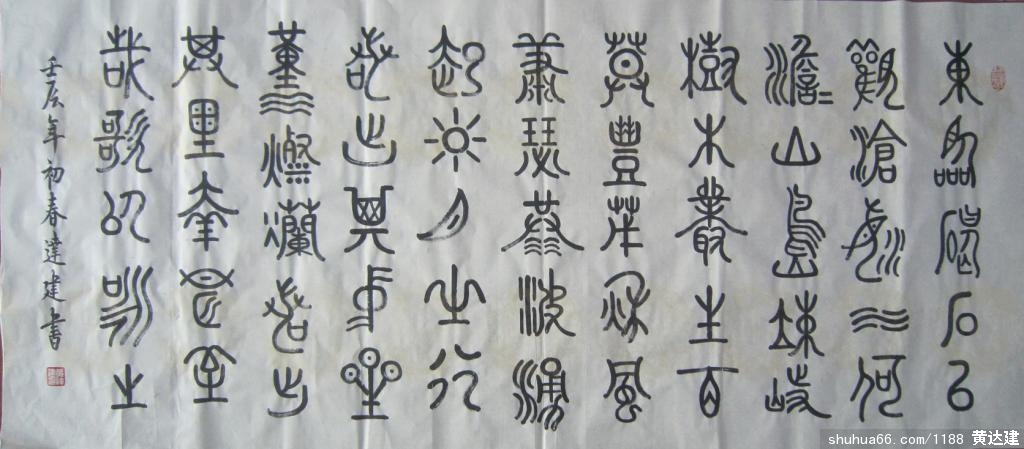 東臨碣石以
觀滄海水何
澹=山島竦峙
樹木叢生百
草豐茂秋風
蕭瑟洪波湧
起日月之行
若出其中星
漢燦爛若出
其里幸甚至
哉歌以詠志
壬辰年初春達建書
shuhua66.com/1188 黄达建